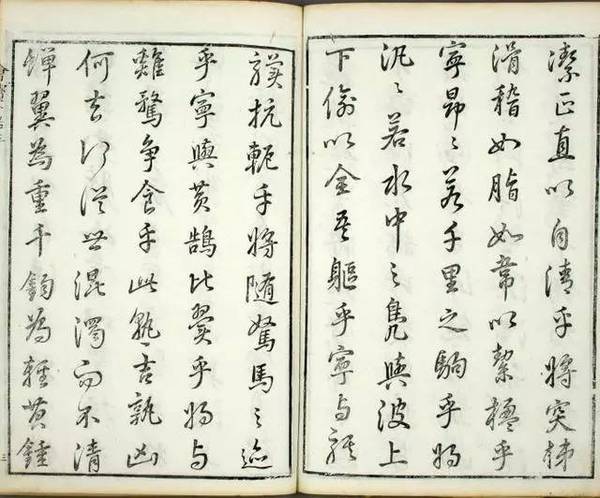 潔正直以自清乎將突梯
滑稽如脂如韋以絜楹乎
寧昂〻若千里之駒乎將
氾〻若水中之鳧與波上
下偷以全吾軀乎寧与騏
驥抗軛乎將隨駑馬之迹
乎寧與黃鵠比翼乎將与
雞鶩爭食乎此孰吉孰凶
何去何從世混濁而不清
蟬翼為重千鈞為輕黃鍾